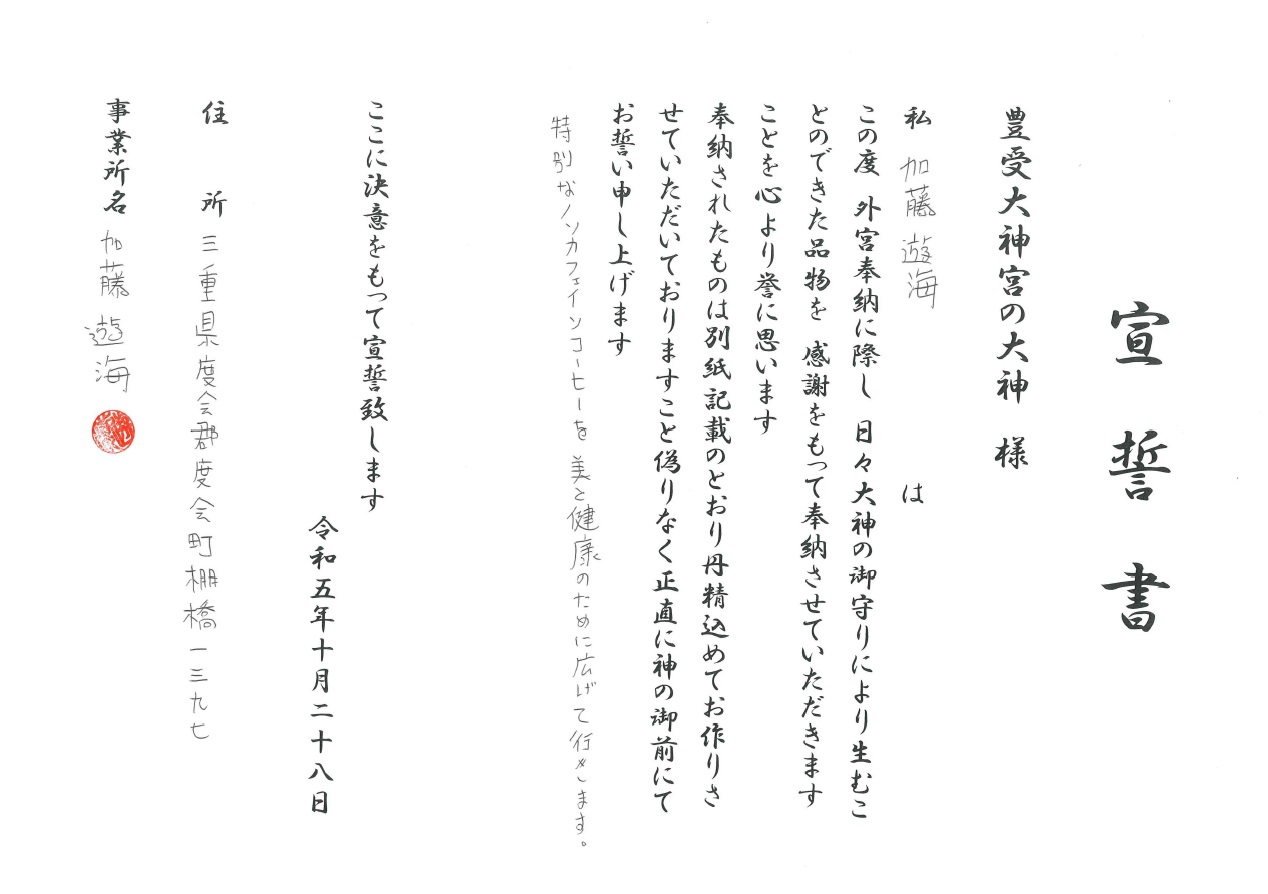 宣誓書
豊受大神宮の大神 様
私 加藤遊海 は
この度 外宮奉納に際し 日々大神の御守りにより生むこ
とのできた品物を 感謝をもって奉納させていただきます
ことを心より誉に思います
奉納されたものは別紙記載のとおり丹精込めてお作りさ
せていただいておりますこと偽りなく正直に神の御前にて
お誓い申し上げます
特別なノンカフェインコーヒーを美と健康のために広げて行きます。
ここに決意をもって宣誓致します
令和五年十月二十八日
住 所 三重県度会郡度会町棚橋一三九七
事業所名 加藤遊海